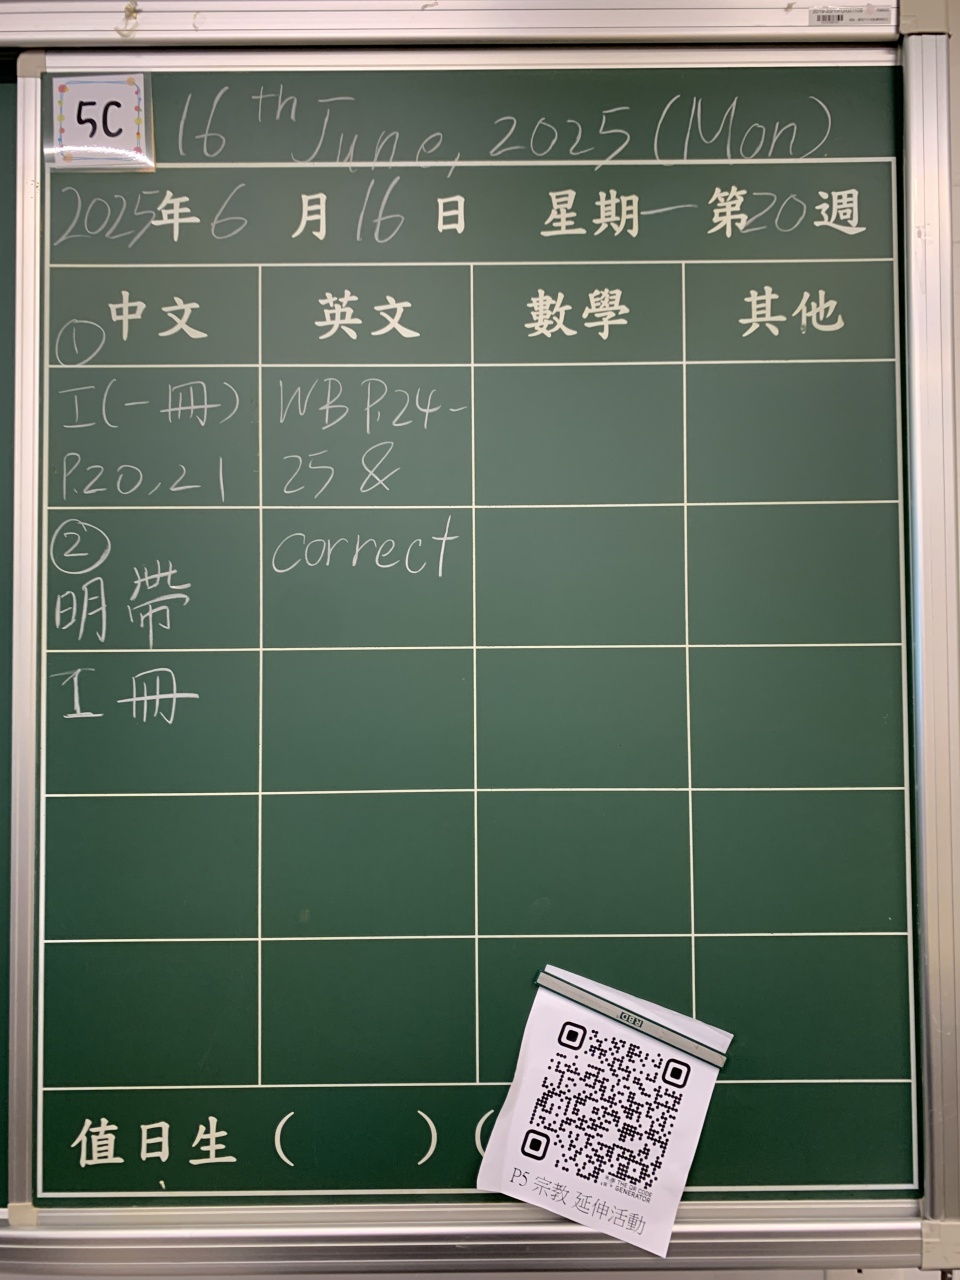 5C
16th June, 2025 (Mon)
2025年6月16日 星期一 第20週
中文 英文 數學 其他
①
工(一冊) WB P.24-
P.20,21 25 &
② correct
明帶
工冊
值日生 ( ) (
RBD
THE QR CODE
GENERATOR
P5 宗教 延伸活動